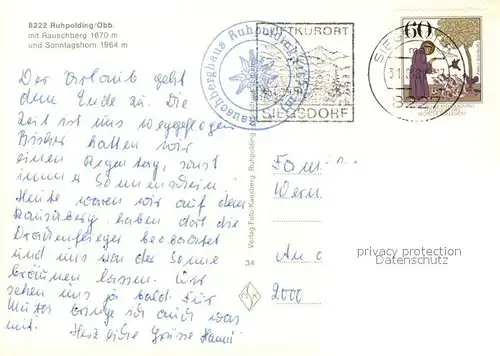 8222 Ruhpolding/Obb.
mit Rauschberg 1670 m
und Sonntagshorn 1964 m
Der Urlaub geht
dem Ende zu. Die
Zeit ist uns weggeflogen
Bisher hatten wir
einen Regentag, sonst
immer Sonnenschein
Heute waren wir auf dem
Rauschberg haben dort die
Drachenflieger beobachtet
und uns von der Sonne
bräunen lassen. Wir
sehen uns ja bald. Für
Mutti bringe ich auch was
mit. Herzliche Grüsse Hanni
Rauschberghaus Ruhpolding
LUFTKURORT
SIEGSDORF
SIEGSDORF
8227
60
Verlag Foto Kunsberg, Ruhpolding
34
Fam
Wern
An d
2000
privacy protection
Datenschutz